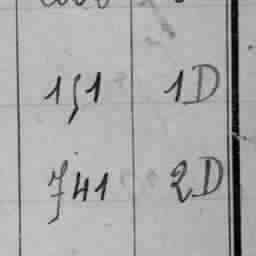 151 1D
741 2D